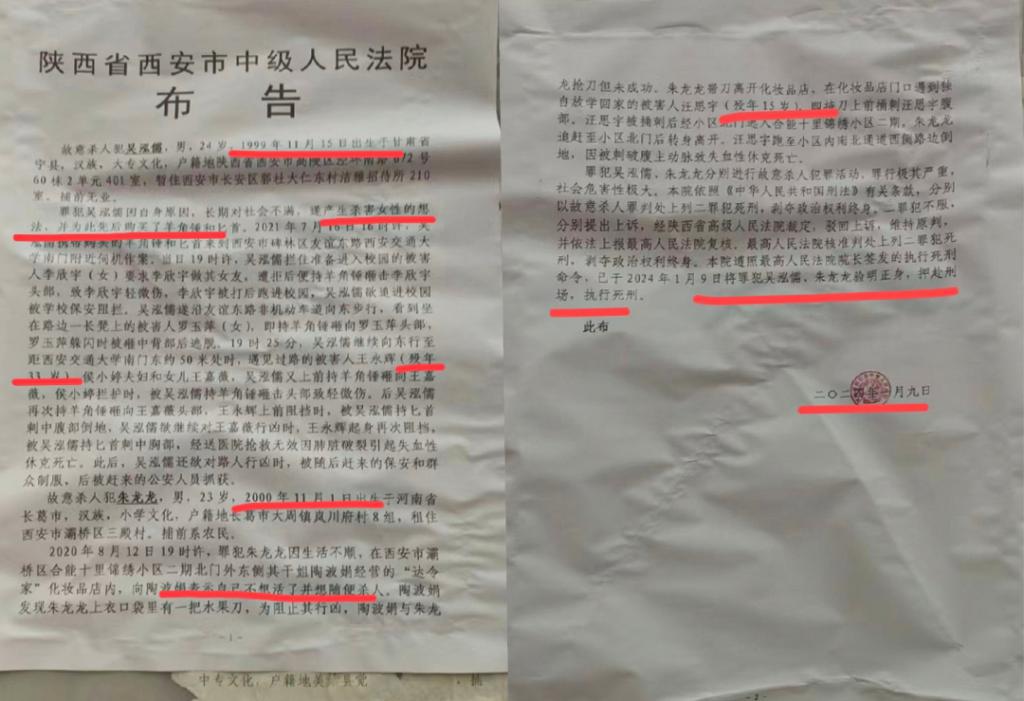 陕西省西安市中级人民法院
布 告
故意杀人犯吴泓儒，男，24岁，1999年11月15日出生于甘肃省
宁县，汉族，大专文化，户籍地陕西省西安市高陵区泾环南路672号
60栋2单元401室，暂住西安市长安区郭杜大仁东村洁雅招待所210
室。捕前无业。
罪犯吴泓儒因自身原因，长期对社会不满，遂产生杀害女性的想
法，并为此先后购买了羊角锤和匕首。2021年7月16日16时许，吴
泓儒携带购买的羊角锤和匕首来到西安市碑林区友谊东路西安交通大
学南门附近伺机作案。当日19时许，吴泓儒拦住准备进入校园的被害
人李欣宇（女）要求李欣宇做其女友，遭拒后便持羊角锤砸击李欣宇
头部，致李欣宇轻微伤，李欣宇被打后跑进校园，吴泓儒欲追进校园
被学校保安阻拦。吴泓儒遂沿友谊东路非机动车道向东步行，看到坐
在路边一长凳上的被害人罗玉萍（女），即持羊角锤砸向罗玉萍头部，
罗玉萍躲闪时被砸中背部后逃脱。19时25分，吴泓儒继续向东行至
距西安交通大学南门东约50米处时，遇见过路的被害人王永辉（殁年
33岁）、侯小婷夫妇和女儿王嘉薇，吴泓儒又上前持羊角锤砸向王嘉
薇，侯小婷拦护时，被吴泓儒持羊角锤砸击头部致轻微伤。后吴泓儒
再次持羊角锤砸向王嘉薇头部，王永辉上前阻挡时，被吴泓儒持匕首
刺中腹部倒地，吴泓儒欲继续对王嘉薇行凶时，王永辉起身再次阻挡，
被吴泓儒持匕首刺中胸部，经送医院抢救无效因肺脏破裂引起失血性
休克死亡。此后，吴泓儒还欲对路人行凶时，被随后赶来的保安和群
众制服，后被赶来的公安人员抓获。
故意杀人犯朱龙龙，男，23岁，2000年11月1日出生于河南省
长葛市，汉族，小学文化，户籍地长葛市大周镇岚川府村8组，租住
西安市灞桥区三殿村。捕前系农民。
2020年8月12日19时许，罪犯朱龙龙因生活不顺，在西安市灞
桥区合能十里锦绣小区二期北门外东侧其干姐陶波娟经营的“达令
家”化妆品店内，向陶波娟表示自己不想活了并想随便杀人。陶波娟
发现朱龙龙上衣口袋里有一把水果刀，为阻止其行凶，陶波娟与朱龙
- 1 -
中专文化，户籍地
龙抢刀但未成功。朱龙龙带刀离开化妆品店，在化妆品店门口遇到独
自放学回家的被害人汪思宇（殁年15岁），即持刀上前捅刺汪思宇腹
部。汪思宇被捅刺后经小区北门进入合能十里锦绣小区二期。朱龙龙
追赶至小区北门后转身离开。汪思宇跑至小区内南北通道西侧路边倒
地，因被刺破腹主动脉致失血性休克死亡。
罪犯吴泓儒、朱龙龙分别进行故意杀人犯罪活动，罪行极其严重，
社会危害性极大。本院依照《中华人民共和国刑法》有关条款，分别
以故意杀人罪判处上列二罪犯死刑，剥夺政治权利终身。二罪犯不服，
分别提出上诉，经陕西省高级人民法院裁定，驳回上诉，维持原判，
并依法上报最高人民法院复核。最高人民法院核准判处上列二罪犯死
刑，剥夺政治权利终身。本院遵照最高人民法院院长签发的执行死刑
命令，已于2024年1月9日将罪犯吴泓儒、朱龙龙验明正身，押赴刑
场，执行死刑。
此布
二〇二四年一月九日
- 2 -